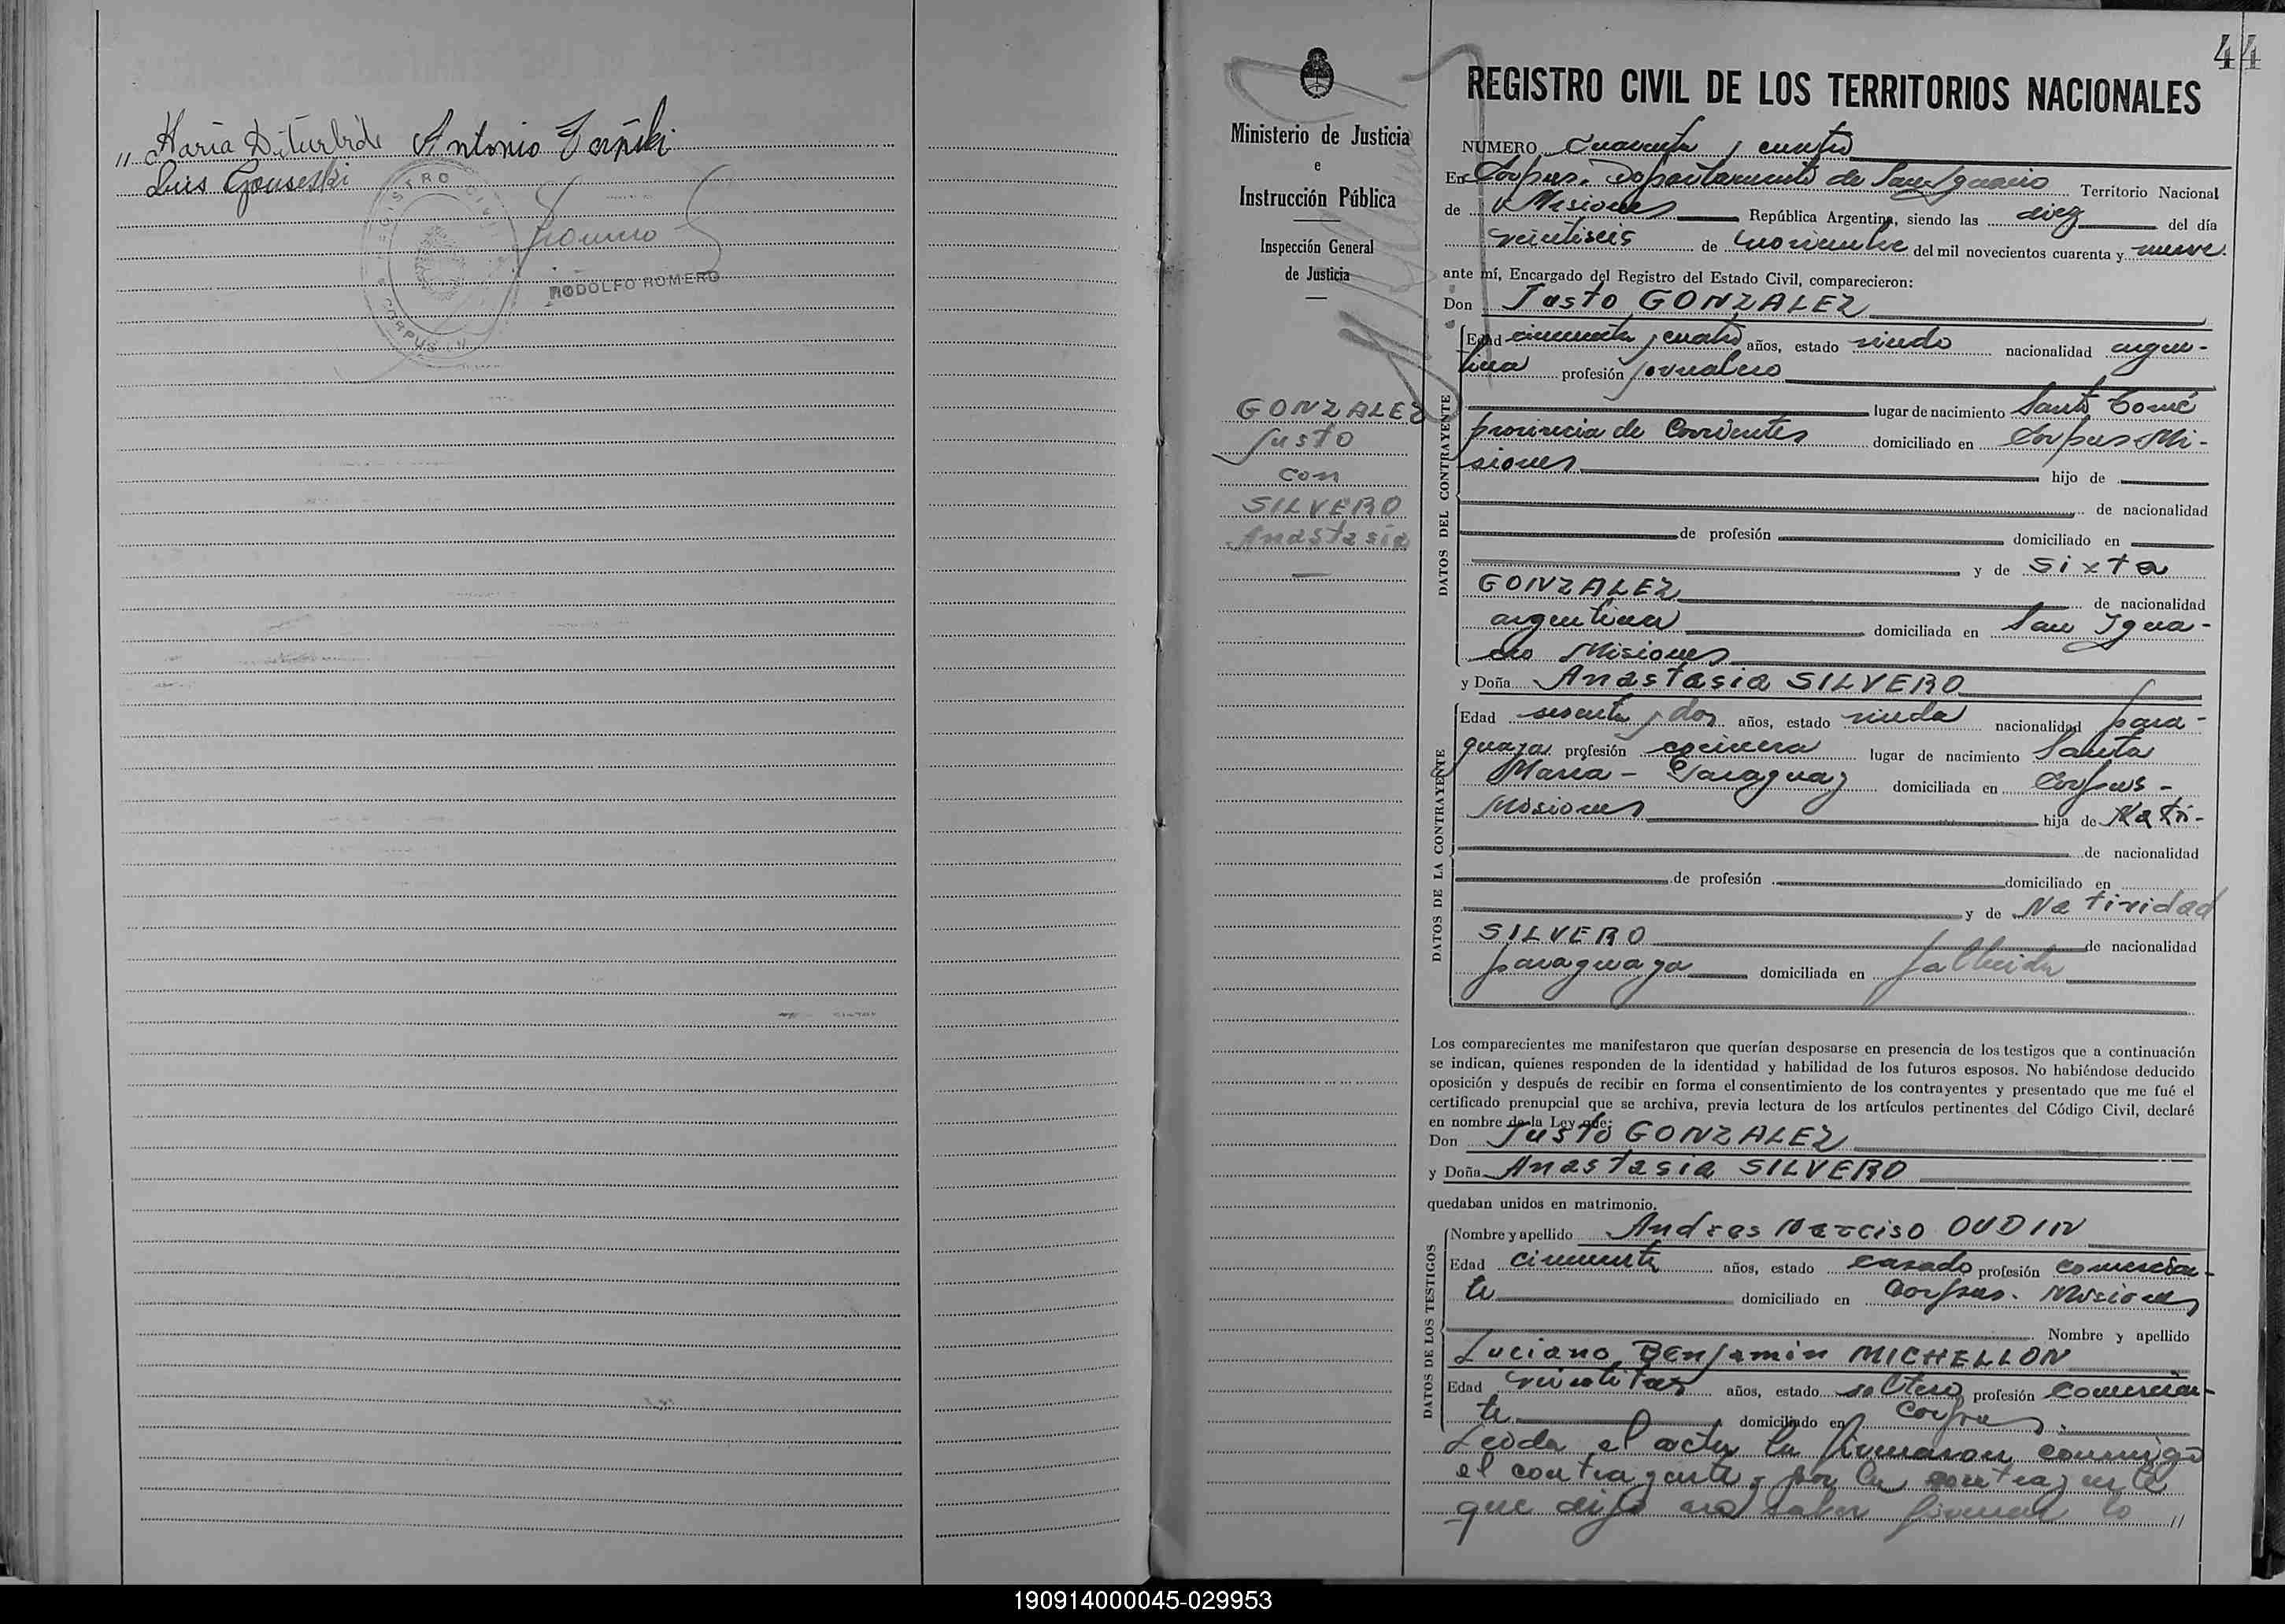 " María Diturbide Antonio
Luis
REGISTRO CIVIL
CORPUS
Romero
RODOLFO ROMERO
44
Ministerio de Justicia
e
Instrucción Pública
Inspección General
de Justicia
GONZALEZ
Justo
con
SILVERO
Anastasia
REGISTRO CIVIL DE LOS TERRITORIOS NACIONALES
NÚMERO cuarenta y cuatro
En Corpus. Departamento de San Ignacio Territorio Nacional
de Misiones República Argentina, siendo las diez del día
veintiseis de noviembre del mil novecientos cuarenta y nueve.
ante mí, Encargado del Registro del Estado Civil, comparecieron:
Don Justo GONZALEZ
DATOS DEL CONTRAYENTE
Edad cincuenta y cuatro años, estado viudo nacionalidad argen-
tina profesión jornalero
lugar de nacimiento Santo Tomé
provincia de Corrientes domiciliado en Corpus Mi-
siones hijo de
de nacionalidad
de profesión domiciliado en
y de Sixta
GONZALEZ de nacionalidad
argentina domiciliada en San Igna-
cio Misiones
y Doña Anastasia SILVERO
DATOS DE LA CONTRAYENTE
Edad sesenta y dos años, estado viuda nacionalidad para-
guaya profesión cocinera lugar de nacimiento Santa
María - Paraguay domiciliada en Corpus -
Misiones hija de Nati-
de nacionalidad
de profesión domiciliado en
y de Natividad
SILVERO de nacionalidad
paraguaya domiciliada en fallecida
Los comparecientes me manifestaron que querían desposarse en presencia de los testigos que a continuación
se indican, quienes responden de la identidad y habilidad de los futuros esposos. No habiéndose deducido
oposición y después de recibir en forma el consentimiento de los contrayentes y presentado que me fué el
certificado prenupcial que se archiva, previa lectura de los artículos pertinentes del Código Civil, declaré
en nombre de la Ley que:
Don Justo GONZALEZ
y Doña Anastasia SILVERO
quedaban unidos en matrimonio.
DATOS DE LOS TESTIGOS
Nombre y apellido Andres Narciso OUDIN
Edad cincuenta años, estado casado profesión comercian-
te domiciliado en Corpus. Misiones
Nombre y apellido
Luciano Benjamin MICHELLON
Edad veintitres años, estado soltero profesión comercian-
te domiciliado en Corpus.
Leída el acta la firmaron conmigo
el contrayente, por la contrayente
que dijo no saber firmar lo "
190914000045-029953